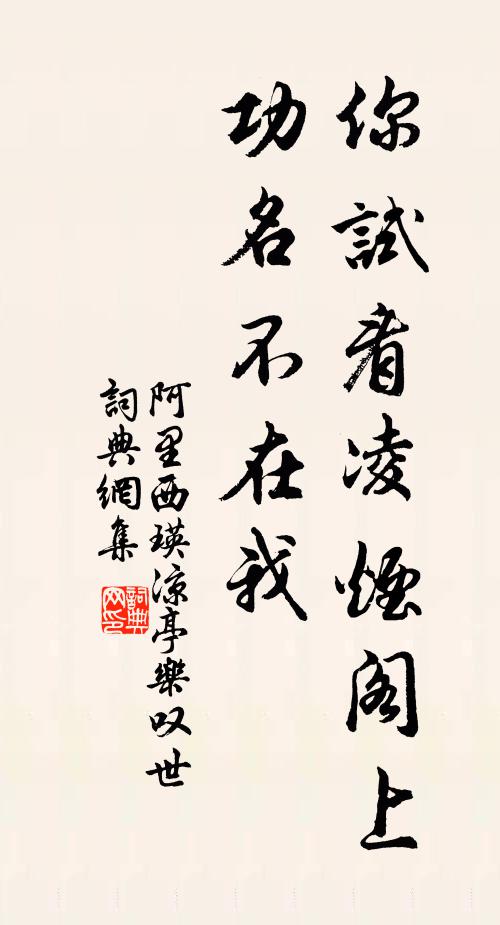 你試看凌煙阁上
功名不在我
阿里西瑛凉亭樂叹世
詞典網集
詞典
网印